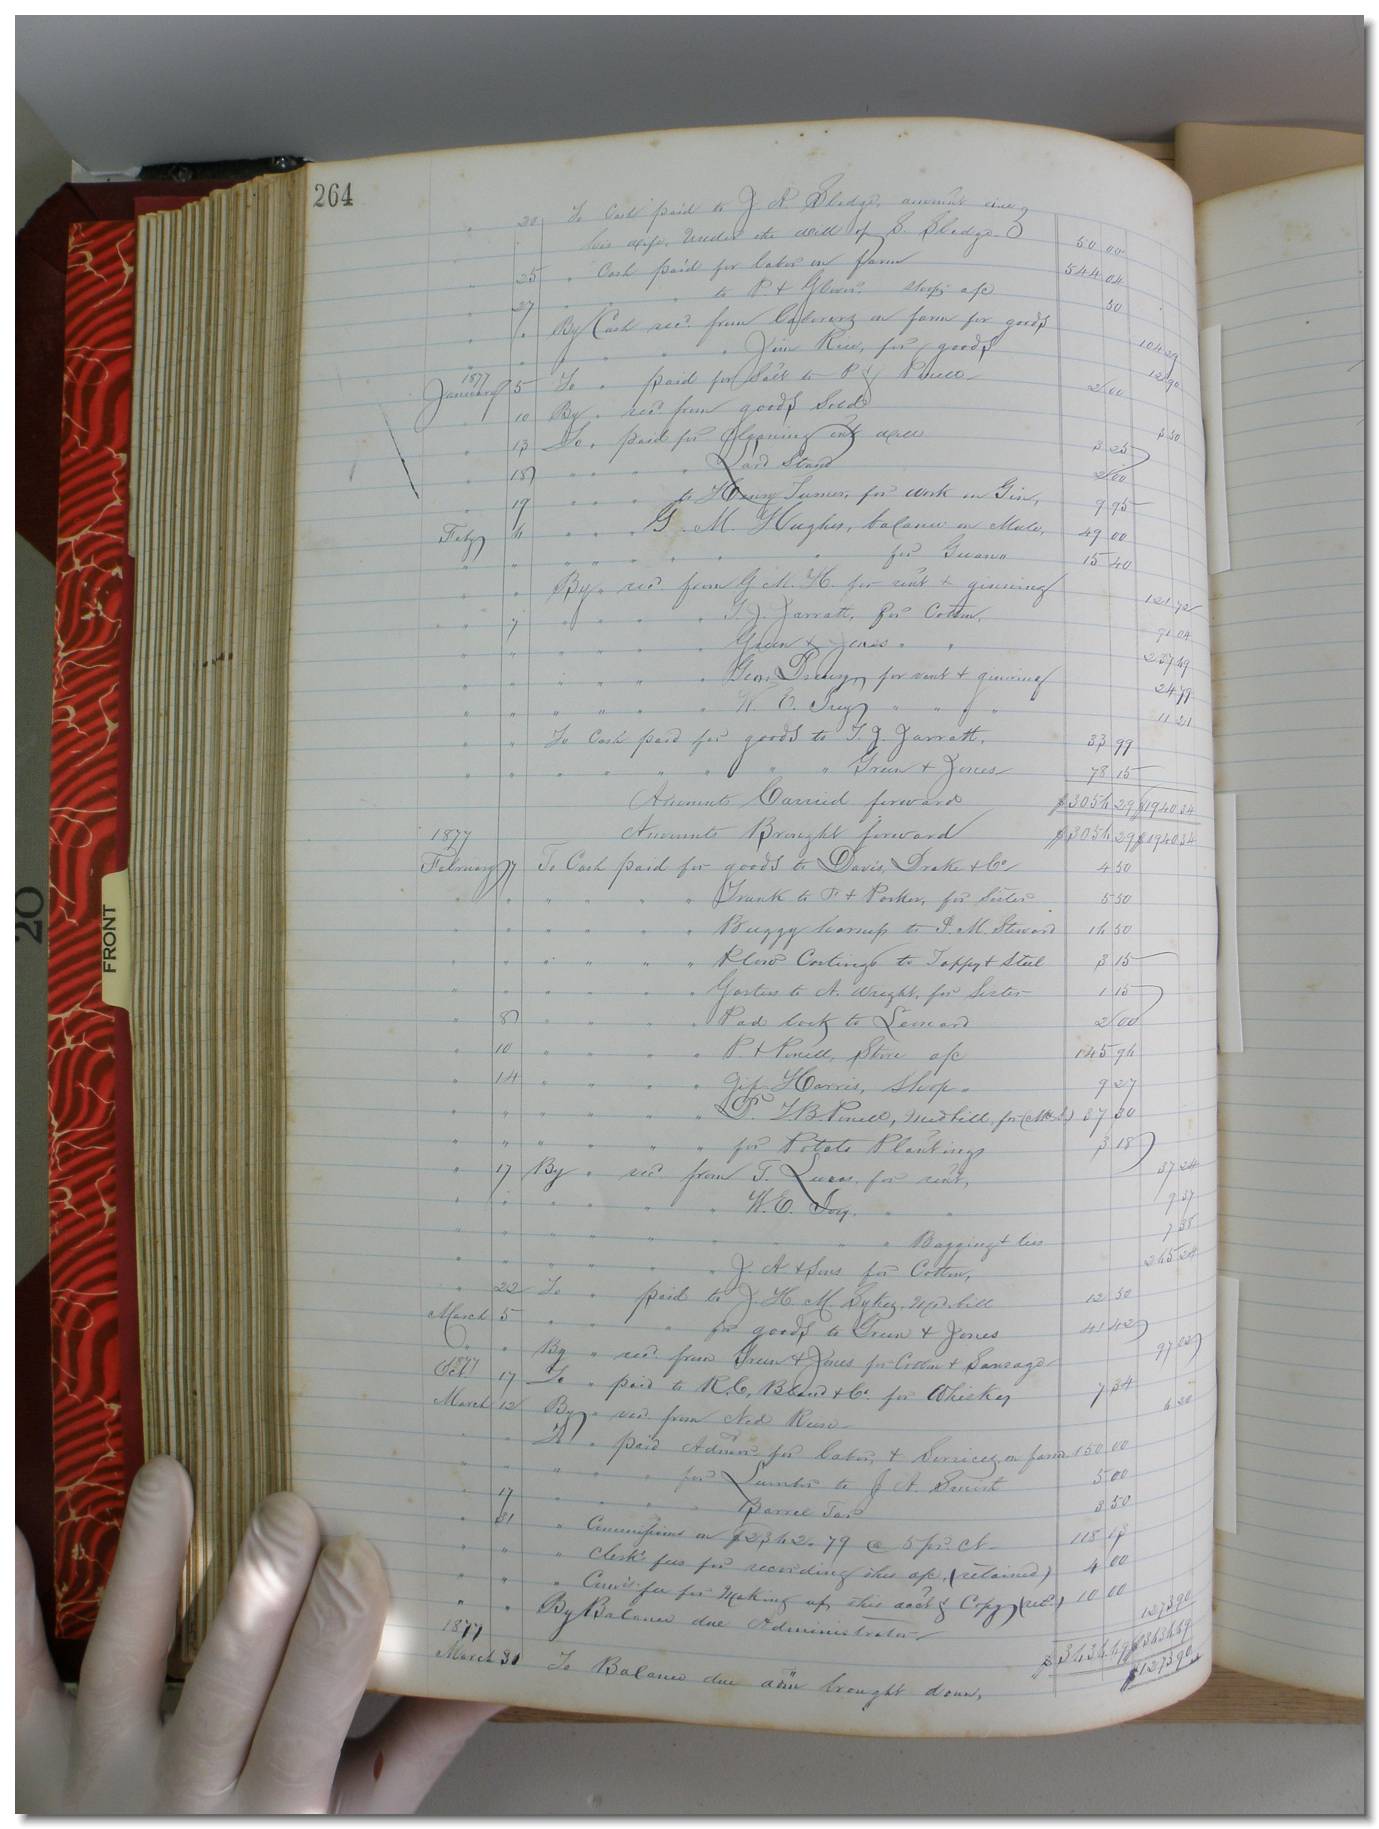 264
" 20 To Cash paid to J. R. Sledge, amount due
his wife, under the will of S. Sledge 50 00
" 25 " Cash paid for labor on farm 544 04
" 27 " " " to P & Glover shop a/c 50
" " By Cash rec'd. from Laborers on farm for goods 104 29
" " " " " Jim Rice, for goods 12 90
1877
January 5 To " paid for Salt to P & Powell 2 00
" 10 By " rec'd from goods Sold 3 50
" 13 To " paid for cleaning out well 3 25
" 18 " " " " Lard Stand 2 00
" 19 " " " to Henry Turner, for work on Gin, 9 95
Feby 4 " " " G. M. Hughes, balance on Mule, 49 00
" " " " " " " for Guano 15 40
" " By " rec'd from G M. H. for rent & ginning 121 72
" 7 " " " " T. J. Jarratt, for Cotton, 91 04
" " " " " " Green & Jones " " 237 49
" " " " " " Geo. Drewry for rent & ginning 24 79
" " " " " " W. E. Ivey " " " " 11 21
" " To Cash paid for goods to T. J. Jarratt, 33 99
" " " " " " " " Green & Jones 78 15
Amounts Carried forward $3054 29 $1940 34
1877 Amounts Brought forward $3054 29 $1940 34
February 7 To Cash paid for goods to Davis, Drake & Co 4 50
" " " " " " Trunk to P & Parker, for Sister 5 50
" " " " " " Buggy harness to J. M. Steward 14 50
" " " " " " Plow Castings to Tappy & Steel 3 15
" " " " " " Gaiters to A. Wright, for Sister 1 15
" 8 " " " " Pad lock to Leonard 2 00
" 10 " " " " P & Powell, Store a/c 145 94
" 14 " " " " Harris, Shop " 9 27
" " " " " " Dr. T. B. Powell, Med bill, for (Mr. S) 37 30
" " " " " " for Potato Plantings 3 18
" 17 By " rec'd. from T. Lucas for rent, 37 24
" " " " " " W. E. Ivy. " " 9 37
" " " " " " " Bagging & ties 7 35
" " " " " " J. A & Sons for Cotton, 245 24
" 22 To " paid to J. H. M. Sykes. Med bill 12 50
March 5 " " " for goods to Green & Jones 41 42
" " By " rec'd from Green & Jones for Cotton & Sausage 97 02
1877
Oct 17 To " paid to R. C. Bland & Co. for Whiskey 7 34
March 12 By " rec'd. from Ned Reese 4 20
" " To " paid Admor. for labor, & Services on farm 150 00
" " " " for Lumber to J. A. 5 00
" 17 " " " Barrel Tar 3 50
" 31 " Commissions on $2342.79 @ 5 pr. Ct. 118 13
" " " Clerk's fees for recording this a/c, (retained) 4 00
" " " Com's fee for Making up this acct & Copy (ret'd) 10 00
" " By Balance due Administrator 1273 90
1877 $3434 49 $3434 49
March 31 To Balance due adm brought down, $1273 90
FRONT
20